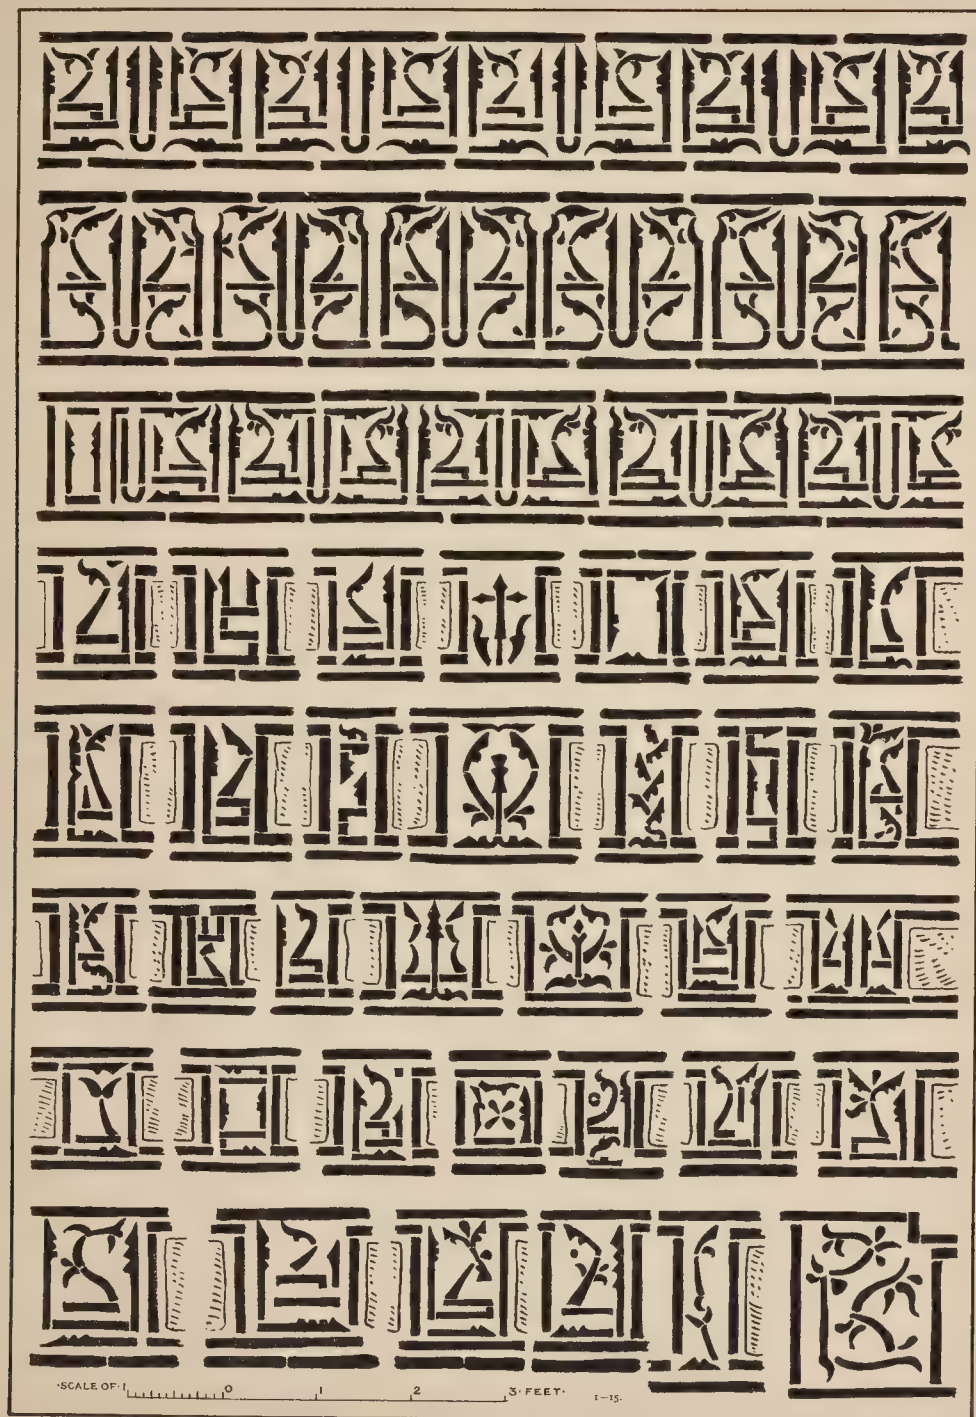 ·SCALE OF· 1 0 1 2 3·FEET· 1—15.